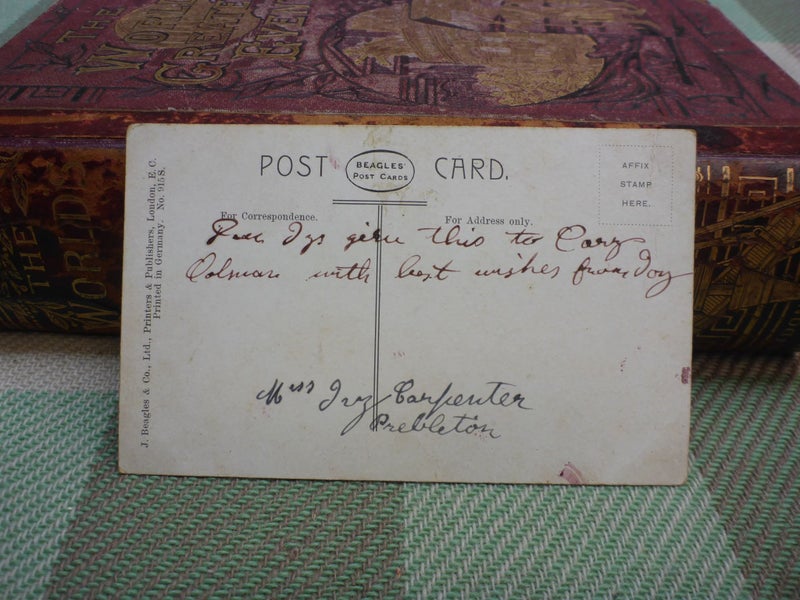 THE
WORLD'S
GREATEST
EVENTS
THE
WORLD'S
POST CARD.
BEAGLES'
POST CARDS
AFFIX
STAMP
HERE.
For Correspondence.
For Address only.
give this to
Colman with best wishes from Joy
Miss Ivy Carpenter
Prebbleton
J. Beagles & Co., Ltd., Printers & Publishers, London, E. C.
Printed in Germany. No. 915 S.